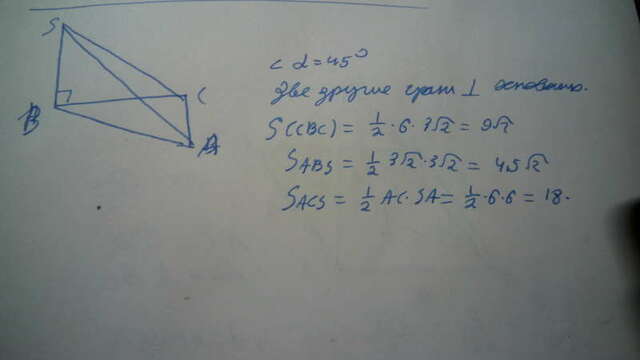 S
B
C
A
с α = 45°
Две другие грани ⊥ основанию.
S(CBC) = 1/2 · 6 · 3√2 = 9√2
S_ABS = 1/2 3√2 · 3√2 = 4,5√2
S_ACS = 1/2 AC · SA = 1/2 · 6 · 6 = 18.